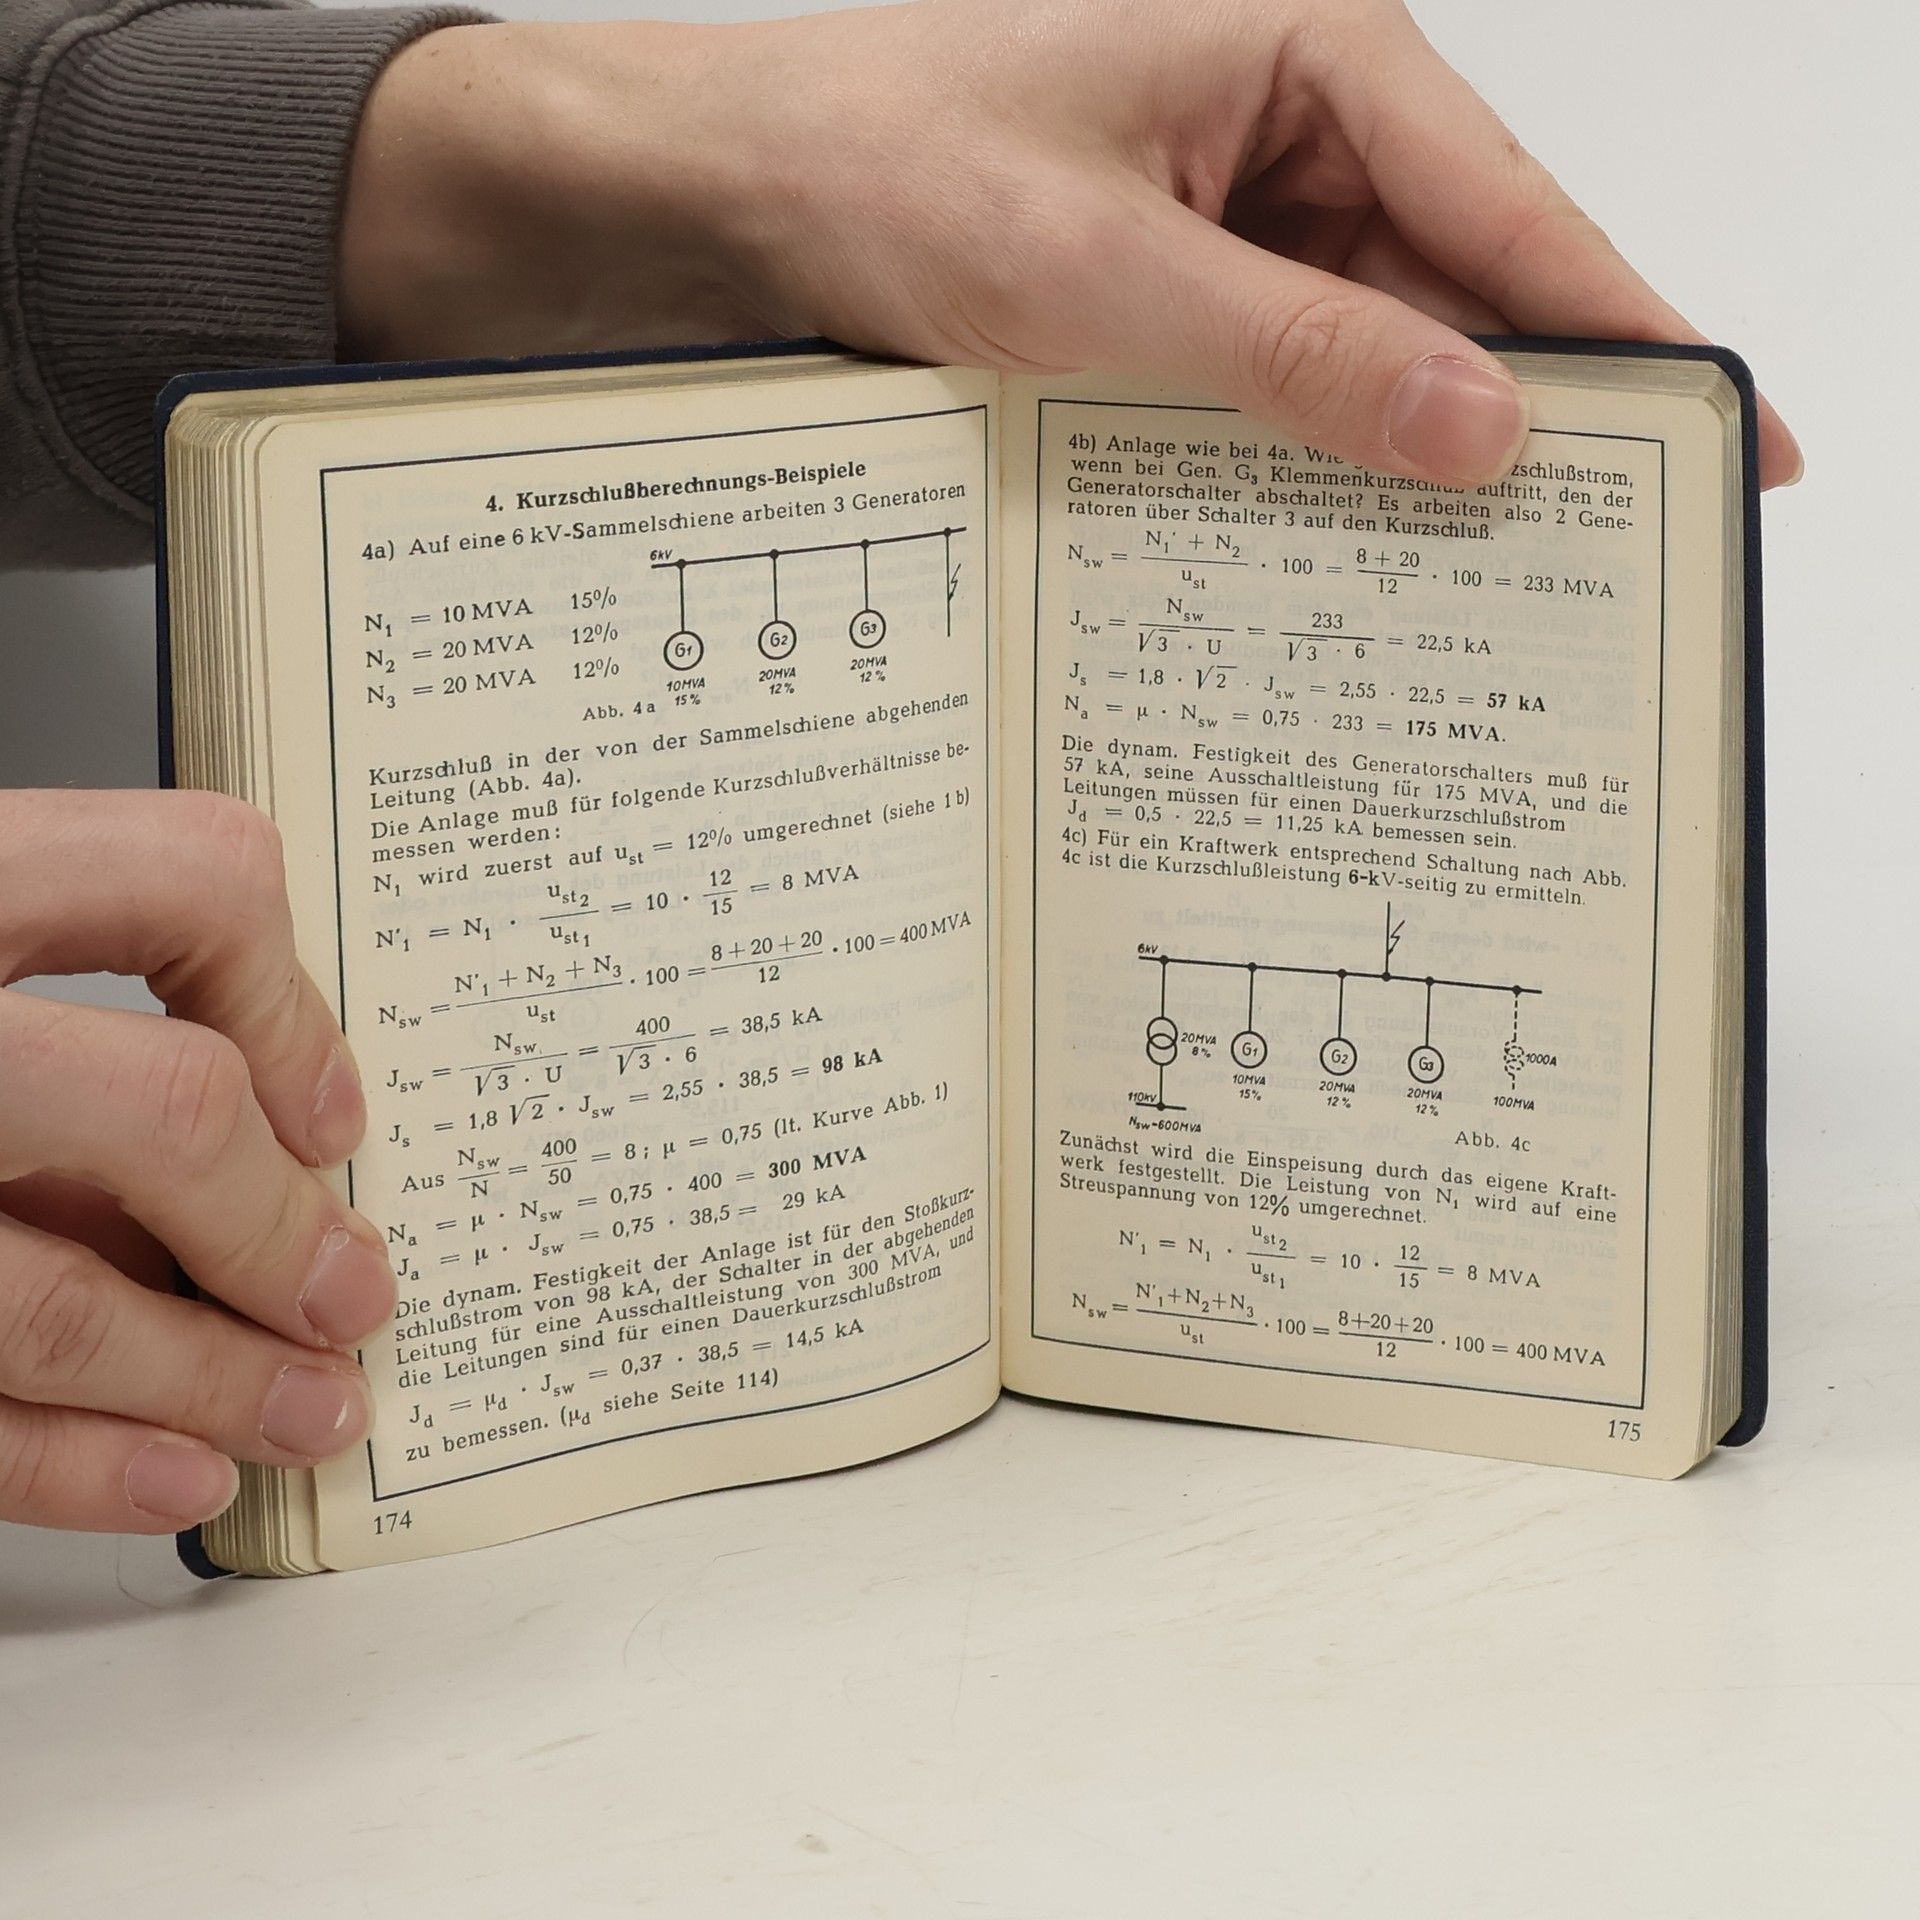 4. Kurzschlußberechnungs-Beispiele
4a) Auf eine 6 kV-Sammelschiene arbeiten 3 Generatoren
6kV
N₁ = 10 MVA 15%
N₂ = 20 MVA 12%
N₃ = 20 MVA 12%
G1 G2 G3
10MVA 20MVA 20MVA
15% 12% 12%
Abb. 4a
Kurzschluß in der von der Sammelschiene abgehenden
Leitung (Abb. 4a).
Die Anlage muß für folgende Kurzschlußverhältnisse be-
messen werden:
N₁ wird zuerst auf u_st = 12% umgerechnet (siehe 1b)
N'₁ = N₁ · u_st2 / u_st1 = 10 · 12/15 = 8 MVA
N_sw = (N'₁ + N₂ + N₃) / u_st · 100 = (8 + 20 + 20) / 12 · 100 = 400 MVA
J_sw = N_sw / (√3 · U) = 400 / (√3 · 6) = 38,5 kA
J_s = 1,8 √2 · J_sw = 2,55 · 38,5 = 98 kA
Aus N_sw / N = 400 / 50 = 8; μ = 0,75 (lt. Kurve Abb. 1)
N_a = μ · N_sw = 0,75 · 400 = 300 MVA
J_a = μ · J_sw = 0,75 · 38,5 = 29 kA
Die dynam. Festigkeit der Anlage ist für den Stoßkurz-
schlußstrom von 98 kA, der Schalter in der abgehenden
Leitung für eine Ausschaltleistung von 300 MVA, und
die Leitungen sind für einen Dauerkurzschlußstrom
J_d = μ_d · J_sw = 0,37 · 38,5 = 14,5 kA
zu bemessen. (μ_d siehe Seite 114)
174
4b) Anlage wie bei 4a. Wie zschlußstrom,
wenn bei Gen. G₃ Klemmenkurzschluß auftritt, den der
Generatorschalter abschaltet? Es arbeiten also 2 Gene-
ratoren über Schalter 3 auf den Kurzschluß.
N_sw = (N₁' + N₂) / u_st · 100 = (8 + 20) / 12 · 100 = 233 MVA
J_sw = N_sw / (√3 · U) = 233 / (√3 · 6) = 22,5 kA
J_s = 1,8 · √2 · J_sw = 2,55 · 22,5 = 57 kA
N_a = μ · N_sw = 0,75 · 233 = 175 MVA.
Die dynam. Festigkeit des Generatorschalters muß für
57 kA, seine Ausschaltleistung für 175 MVA, und die
Leitungen müssen für einen Dauerkurzschlußstrom
J_d = 0,5 · 22,5 = 11,25 kA bemessen sein.
4c) Für ein Kraftwerk entsprechend Schaltung nach Abb.
4c ist die Kurzschlußleistung 6-kV-seitig zu ermitteln.
6kV
20MVA 8% G1 G2 G3 1000A
10MVA 20MVA 20MVA 100MVA
15% 12% 12%
110kV
N_sw=600MVA
Abb. 4c
Zunächst wird die Einspeisung durch das eigene Kraft-
werk festgestellt. Die Leistung von N₁ wird auf eine
Streuspannung von 12% umgerechnet.
N'₁ = N₁ · u_st2 / u_st1 = 10 · 12/15 = 8 MVA
N_sw = (N'₁+N₂+N₃) / u_st · 100 = (8+20+20) / 12 · 100 = 400 MVA
175